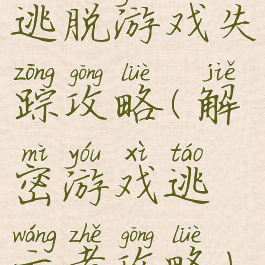 逃脱游戏失
zōng gōng lüè jiě
踪攻略(解
mì yóu xì táo
密游戏逃
wáng zhě gōng lüè
亡者攻略)